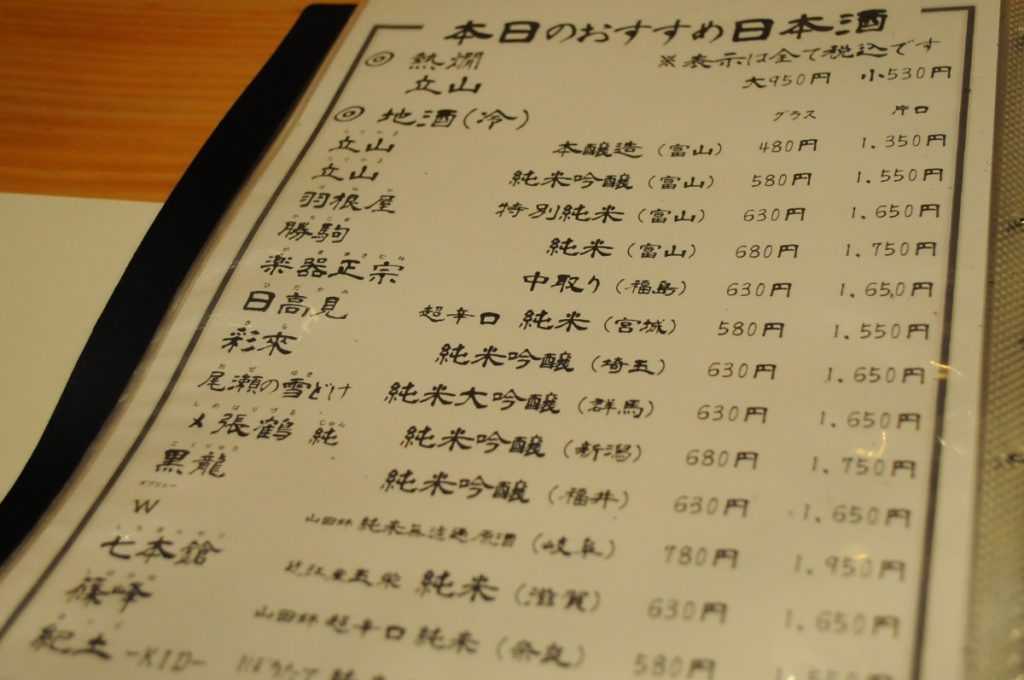 本日のおすすめ日本酒
※表示は全て税込です
◎ 熱燗
立山 大950円 小530円
◎ 地酒(冷) グラス 片口
立山 本醸造(富山) 480円 1.350円
立山 純米吟醸(富山) 580円 1.550円
羽根屋 特別純米(富山) 630円 1.650円
勝駒 純米(富山) 680円 1.750円
楽器正宗 中取り(福島) 630円 1.650円
日高見 超辛口 純米(宮城) 580円 1.550円
彩來 純米吟醸(埼玉) 630円 1.650円
尾瀬の雪どけ 純米大吟醸(群馬) 630円 1.650円
〆張鶴 純 純米吟醸(新潟) 680円 1.750円
黒龍 純米吟醸(福井) 630円 1.650円
W 山田錦 純米無濾過原酒(岐阜) 780円 1.950円
七本鎗 純米(滋賀) 630円 1.650円
篠峰 山田錦 超辛口 純米(奈良) 580円 1.550円
紀土 -KID-